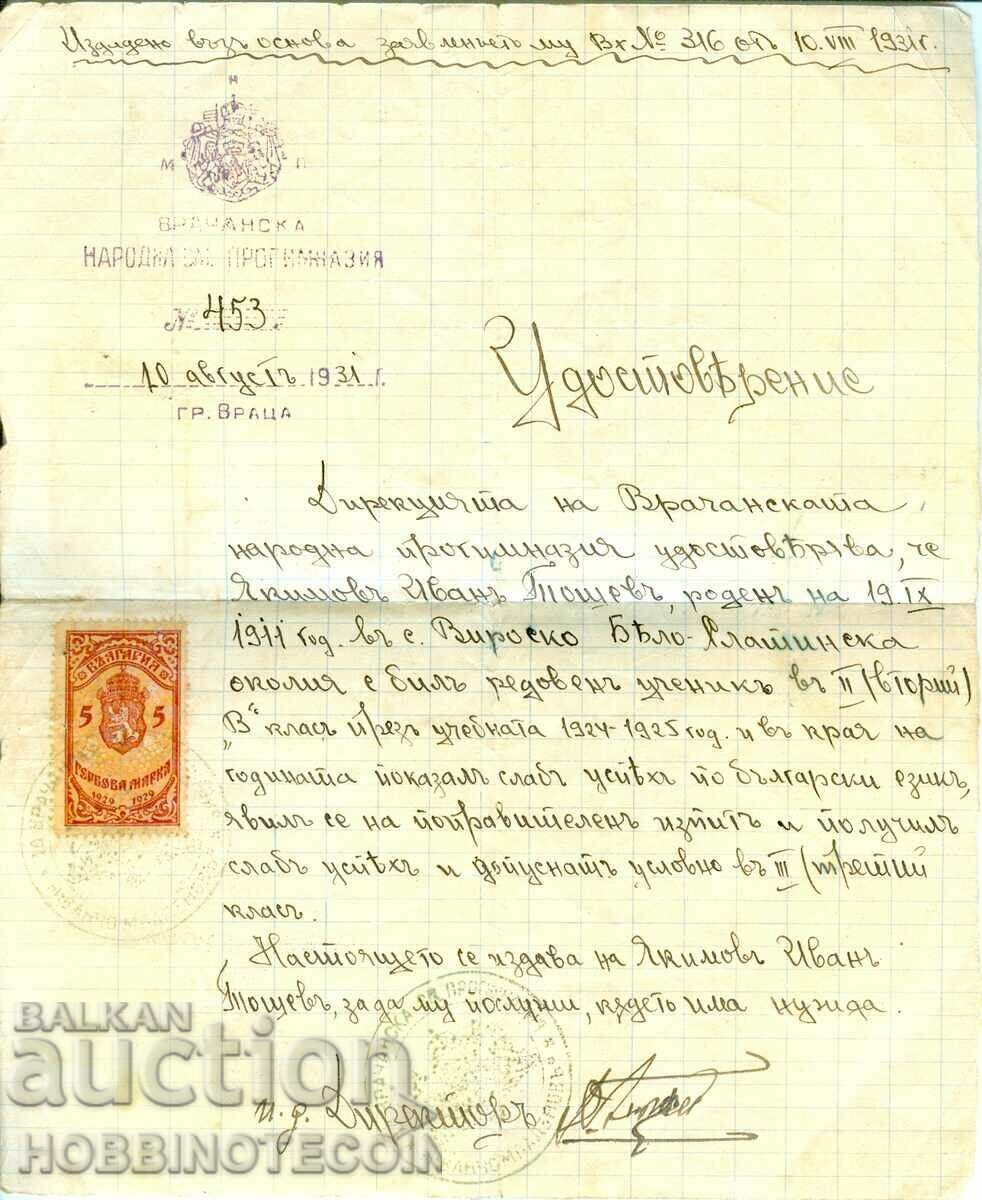 Издадено възъ основа заявленьето му Вх № 316 отъ 10. VIII 1931 г.
М Н П
ВРАЧАНСКА
НАРОДНА ПРОГИМНАЗИЯ
№ 453
10 августъ 1931 г.
ГР. ВРАЦА
Удостовѣрение
Дирекцията на Врачанската
народна прогимназия удостовѣрява, че
Якимовъ Иванъ Тошевъ, роденъ на 19. IX
1911 год. въ с. Вировско Бѣло-Слатинска
околия е билъ редовенъ ученикъ въ II (вторий)
„В“ класъ презъ учебната 1924-1925 год. и въ края на
годината показалъ слабъ успѣхъ по български езикъ,
явилъ се на поправителенъ изпитъ и получилъ
слабъ успѣхъ и допуснатъ условно въ III (третий
класъ.
Настоящето се издава на Якимовъ Иванъ
Тошевъ, за да му послужи, кѫдето има нужда.
и. д. Директоръ
БЪЛГАРИЯ
5 5
ГЕРБОВА МАРКА
1929 1929
BALKAN
auction
HOBBINOTECOIN